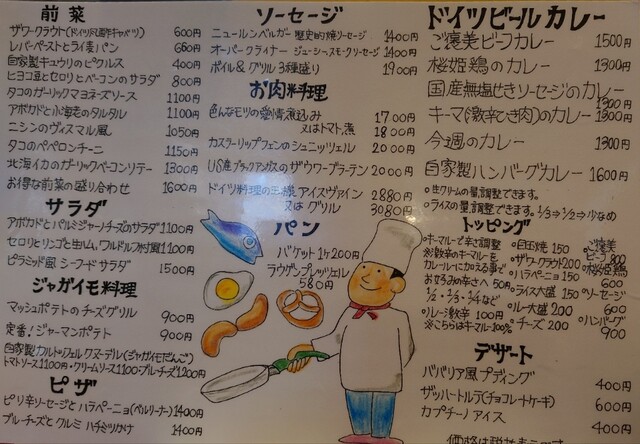 前菜
ザワークラウト(ドイツ風酢キャベツ) 600円
レバーペーストとライ麦パン 660円
自家製キュウリのピクルス 400円
ヒヨコ豆とセロリとベーコンのサラダ 800円
タコのガーリックマヨネーズソース 1100円
アボカドと小海老のタルタル 1100円
ニシンのヴィスマル風 1050円
タコのペペロンチーニ 1150円
北海イカのガーリックベーコンソテー 1300円
お得な前菜の盛り合わせ 1600円
サラダ
アボカドとパルミジャーノチーズのサラダ 1100円
セロリとリンゴと生ハム、ワルドルフ村風 1100円
ピラミッド風 シーフードサラダ 1500円
ジャガイモ料理
マッシュポテトのチーズグリル 900円
定番!ジャーマンポテト 900円
自家製カルトッフェルクヌーデル(ジャガイモだんご)
トマトソース1100円・クリームソース1100・ブルーチーズ1200円
ピザ
ピリ辛ソーセージとハラペーニョ(ベルリーナー) 1400円
ブルーチーズとクルミ ハチミツがけ 1400円
ソーセージ
ニュールンベルガー 歴史的焼ソーセージ 1400円
オーバークライナー ジューシースモークソーセージ 1400円
ボイル&グリル 3種盛り 1900円
お肉料理
色んなモツの愛情煮込み 1700円
又はトマト煮 1800円
カスラーリップフェンのシュニッツェル 2000円
US産ブラックアンガスのザウワーブラーテン 2000円
ドイツ料理の王様 アイスヴァイン 2880円
又は グリル 3080円
パン
バケット 1ヶ200円
ラウゲンプレッツェル
580円
ドイツビールカレー
ご褒美ビーフカレー 1500円
桜姫鶏のカレー 1300円
国産無塩せきソーセージのカレー 1300円
キーマ(激辛ひき肉)のカレー 1300円
今週のカレー 1300円
自家製ハンバーグカレー 1600円
○生クリームの量、調整できます。
○ライスの量、調整できます。1/3⇒1/2⇒少なめ
トッピング
○キーマルーで辛さ調整
※激辛のキーマルーを
カレールーに加える事で
お好みの辛さへ 50円
1/2・2/3・3/4など
○ルー激辛 100円
※こちらはキーマルー100%
○目玉焼 150
○ザワークラウト200
○ハラペーニョ150
○ライス大盛 150
○ルー大盛 200
○チーズ 200
○ご褒美ビーフ 800
○桜姫鶏 600
○ソーセージ 600
○ハンバーグ 900
デザート
ババリア風プディング 400円
ザッハートルテ(チョコレートケーキ) 600円
カプチーノアイス 400円